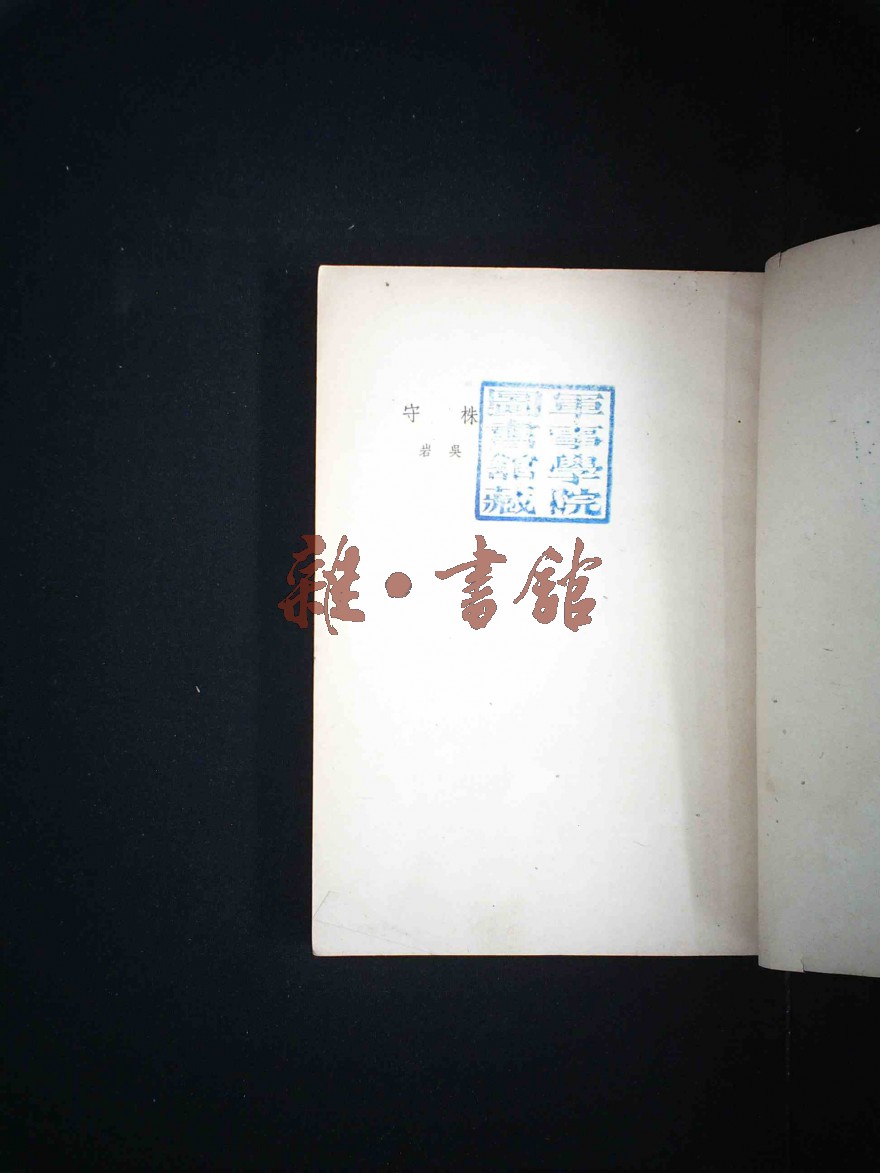 株守
吳岩
軍事學院
圖書館藏
雜·書館